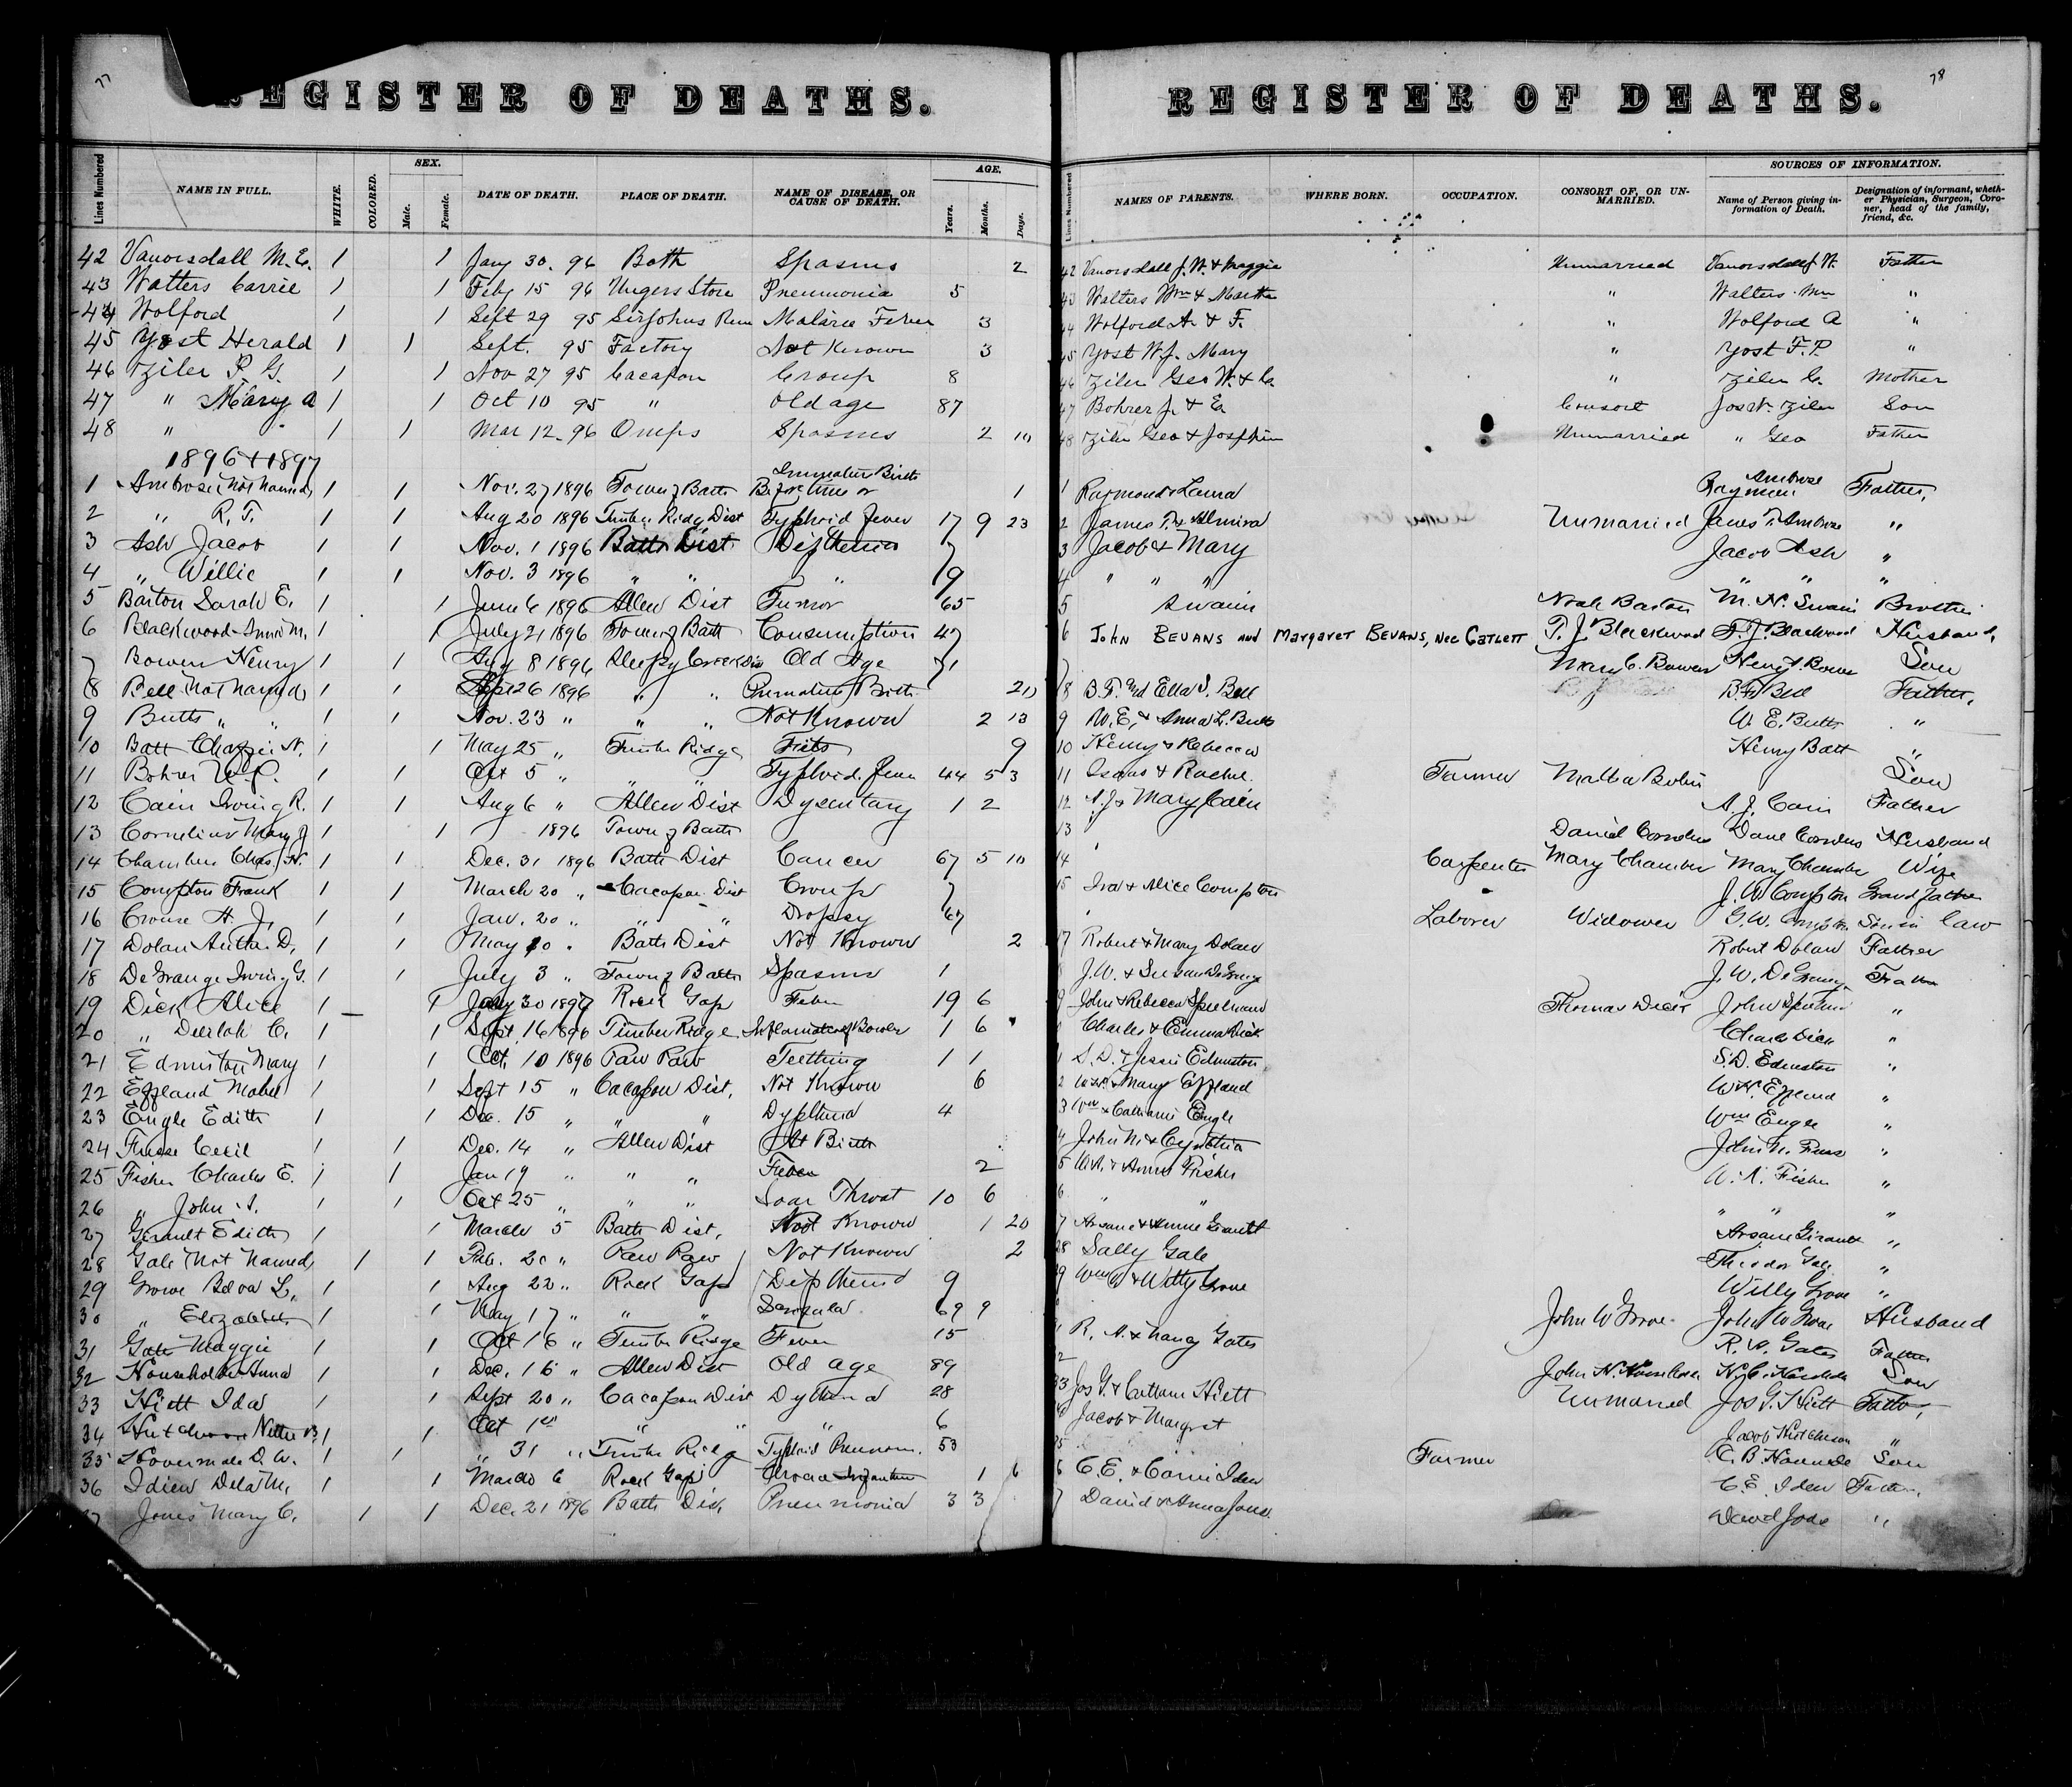 77
REGISTER OF DEATHS.
Lines Numbered
NAME IN FULL.
WHITE.
COLORED.
SEX.
Male.
Female.
DATE OF DEATH.
PLACE OF DEATH.
NAME OF DISEASE, OR CAUSE OF DEATH.
AGE.
Years.
Months.
Days.
42 Vanorsdall M. E. 1 1 Jany 30. 96 Bath Spasms 2
43 Walters Carrie 1 1 Feby 15 96 Ungers Store Pneumonia 5
44 Wolford 1 1 Sept 29 95 Sir Johns Run Malaria Fever 3
45 Yost Herald 1 1 Sept. 95 Factory Not Known 3
46 Ziler P. G. 1 1 Nov 27 95 Cacapon Croup 8
47 " Mary A 1 1 Oct 10 95 " Old age 87
48 " 1 1 Mar 12. 96 Omps Spasms 2
1896 & 1897
1 Ambrose (Not Named) 1 1 Nov. 27 1896 Town of Bath Before time or Immature Birth 1
2 " R. T. 1 1 Aug 20 1896 Timber Ridge Dist Typhoid Fever 17 9 23
3 Ash Jacob 1 1 Nov. 1 1896 Bath Dist Diptheria 7
4 " Willie 1 1 Nov. 3 1896 " " " 9
5 Barton Sarah E. 1 1 June 6 1896 Allen Dist Tumor 65
6 Blackwood Annie M. 1 1 July 21 1896 Town of Bath Consumption 47
7 Bowen Henry 1 1 Aug 8 1896 Sleepy Creek Dis Old Age 71
8 Bell Not Named 1 1 26 1896 " " Premature Birth
9 Butts " " 1 1 Nov. 23 " " " Not Known 2 13
10 Batt N. 1 1 May 25 " Timber Ridge Fits 9
11 Bohrer 1 1 Oct 5 " " " Typhoid Fever 44 5 3
12 Cain Irving R. 1 1 Aug 6 " Allen Dist Dysentary 1 2
13 Cornelius Mary J 1 1896 Town of Bath
14 Chambers Chas. N. 1 1 Dec. 31 1896 Bath Dist Cancer 67 5 10
15 Compton Frank 1 1 March 20 " Cacapon Dist Croup 7
16 Crouse H. J. 1 1 Jan. 20 " " " Dropsy 67
17 Dolan D. 1 1 May 10 " Bath Dist Not Known 2
18 DeGrange Irving G. 1 1 July 3 " Town of Bath Spasms 1
19 Dick Alice 1 1 30 1896 Rock Gap Fever 19 6
20 " Delilah C. 1 1 Sept. 16 1896 Timber Ridge Inflamation of Bowels 1 6
21 Edmiston Mary 1 1 Oct. 10 1896 Paw Paw Teething 1 1
22 Effland Mabel 1 1 Sept 15 " Cacapon Dist. Not Known 6
23 Engle Edith 1 1 Dec. 15 " " " Dyptheria 4
24 Cecil 1 1 Dec. 14 " Allen Dist At Birth
25 Fisher Charles E. 1 1 Jan 19 " " " Fever 2
26 " John S. 1 1 Oct 25 " " " Soar Throat 10 6
27 Girault Edith 1 1 March 5 Bath Dist. Not Known 1 20
28 Gale Not Named 1 1 Feb. 20 " Paw Paw Not Known 2
29 Grove L. 1 1 Aug 22 " Rock Gap Diptheria 9
30 " Elizabeth 1 1 May 17 " " " 69 9
31 Gates Maggie 1 1 Oct 16 " Timber Ridge Fever 15
32 Householder Anna 1 1 Dec. 16 " Allen Dist Old age 89
33 Hiett Ida 1 1 Sept 20 " Cacapon Dist Dyptheria 28
34 Hutchinson Nettie 1 1 Oct 1st " " " 6
35 Hovermale D. W. 1 1 " 31 " Timber Ridge Typhoid Pneumon. 53
36 Iden Dela M. 1 1 March 6 Rock Gap Cholera Infantum 1 6
37 Jones Mary C. 1 1 Dec. 21 1896 Bath Dis. Pneumonia 3 3
78
REGISTER OF DEATHS.
Lines Numbered
NAMES OF PARENTS.
WHERE BORN.
OCCUPATION.
CONSORT OF, OR UN-MARRIED.
SOURCES OF INFORMATION.
Name of Person giving in-formation of Death.
Designation of informant, wheth-er Physician, Surgeon, Coro-ner, head of the family, friend, &c.
42 Vanorsdall J. W. & Maggie Unmarried Vanorsdall J. W. Father
43 Walters Wm & Martha " Walters Wm "
44 Wolford A. & F. " Wolford A "
45 Yost W. J. Mary " Yost F. P. "
46 Ziler Geo W. & C. " Ziler C. Mother
47 Bohrer J. & E. Consort Jos W. Ziler Son
48 Ziler Geo & Josephine Unmarried " Geo Father
1 Raymond & Laura Raymon Ambrose Father,
2 James T. & Almira Unmarried James T. Ambrose "
3 Jacob & Mary Jacob Ash "
4 " " " " " "
5 Swain Noah Barton M. N. Swain Brother
6 JOHN BEVANS AND MARGARET BEVANS, NEE CATLETT T. J. Blackwood T. J. Blackwood Husband,
7 Mary C. Bowen Henry Bowen Son
8 B. F. and Ella S. Bell B. F. Bell Father,
9 W. E. & Anna L. Butts W. E. Butts "
10 Henry & Rebecca Henry Batt "
11 Isaac & Rachel Farmer Son
12 A. J. & Mary Cain A. J. Cain Father
13 Daniel Cornelius Danl Cornelius Husband
14 Carpenter Mary Chamber Mary Chamber Wife
15 Ira & Alice Compton J. W. Compton Grand father
16 Laborer Widower G. W. Son in law
17 Robert & Mary Dolan Robert Dolan Father
J. W. & Susan DeGrange J. W. DeGrange Father
9 John & Rebecca Speelman Thomas Dick John "
Charles & Emma Dick Charles Dick "
1 S. D. & Jessie Edmiston S. D. Edmiston "
2 & Mary Effland Effland "
3 Wm & Catharine Engle Wm Engle "
4 John N. & Cynthia John N. "
5 & Annie Fisher Fisher "
6 " " " " "
7 Arsane & Annie Girault Arsane Girault "
28 Sally Gale Theodor Gale "
9 Wm & Grove Willy Grove "
John W Grove John W Grove Husband
1 R. & Nancy Gates R. Gates Father
2 John N. Son
33 Jos G. & Hiett Unmarried Jos G. Hiett Father,
Jacob & Margret Jacob Hutchinson "
35 Farmer C. B. Son
6 C. E. & Carrie Iden C. E. Iden Father,
7 David & Anna Jones David "